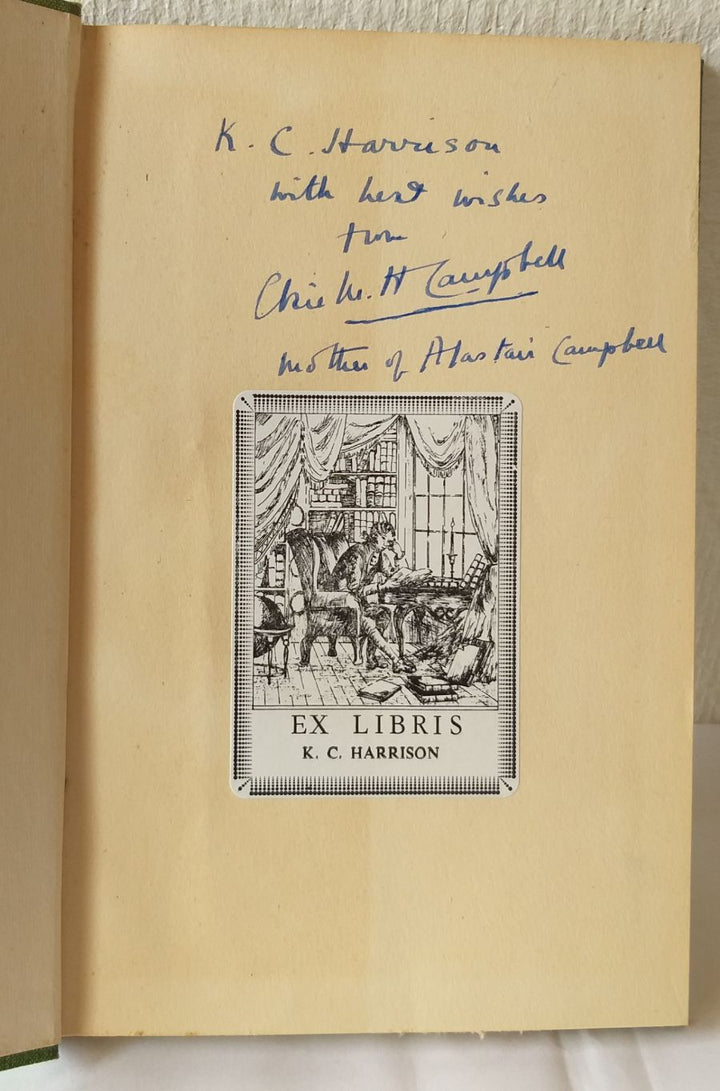 K. C. Harrison
with best wishes
from
M. H Campbell
mother of Alastair Campbell
EX LIBRIS
K. C. HARRISON